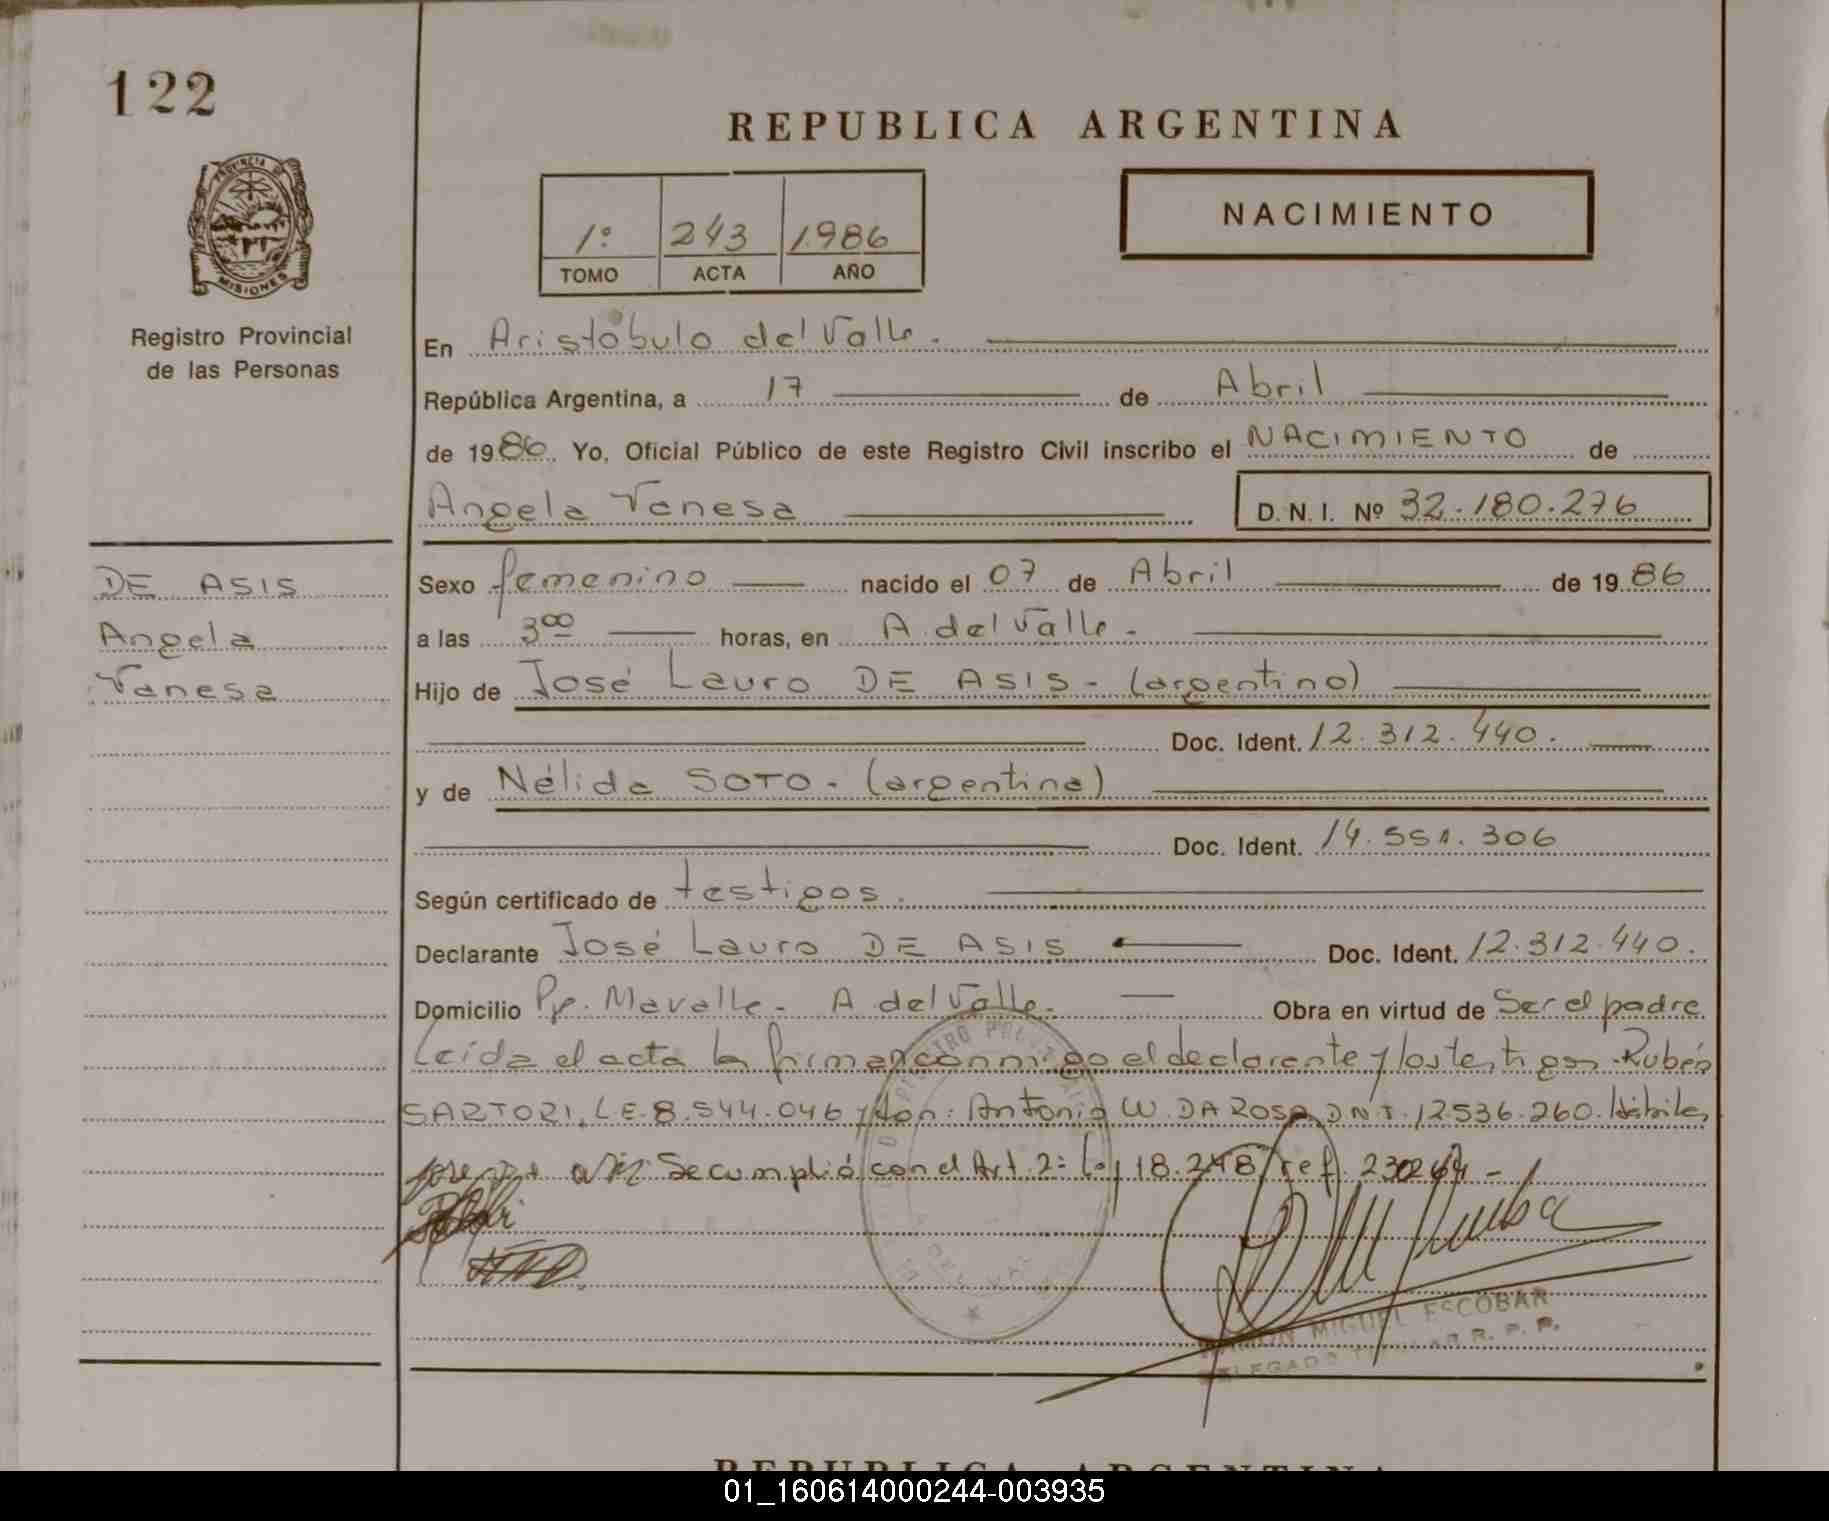 122
REPUBLICA ARGENTINA
PROVINCIA DE
MISIONES
Registro Provincial
de las Personas
1º 243 1986
TOMO ACTA AÑO
NACIMIENTO
En Aristóbulo del Valle.
República Argentina, a 17 de Abril
de 1986. Yo, Oficial Público de este Registro Civil inscribo el NACIMIENTO de
Angela Vanesa D. N. I. Nº 32.180.276
DE ASIS
Angela
Vanesa
Sexo femenino nacido el 07 de Abril de 1986
a las 3ºº horas, en A. del Valle.
Hijo de José Lauro DE ASIS - (argentino)
Doc. Ident. 12.312.440.
y de Nélida SOTO - (argentina)
Doc. Ident. 14.551.306
Según certificado de testigos.
Declarante José Lauro DE ASIS Doc. Ident. 12.312.440.
Domicilio Pje. Mavalle - A del Valle. Obra en virtud de Ser el padre
Leída el acta la firman conmigo el declarante y los testigos Rubén
SARTORI, L.E. 8.544.046 y don: Antonio W. DA ROSA DNI. 12.536.260. Hábiles
Se cumplió con el Art. 2º Ley 18.248 / ref.
MIGUEL ESCOBAR
DELEGADO TITULAR R. P. P.
REPUBLICA ARGENTINA
01_160614000244-003935